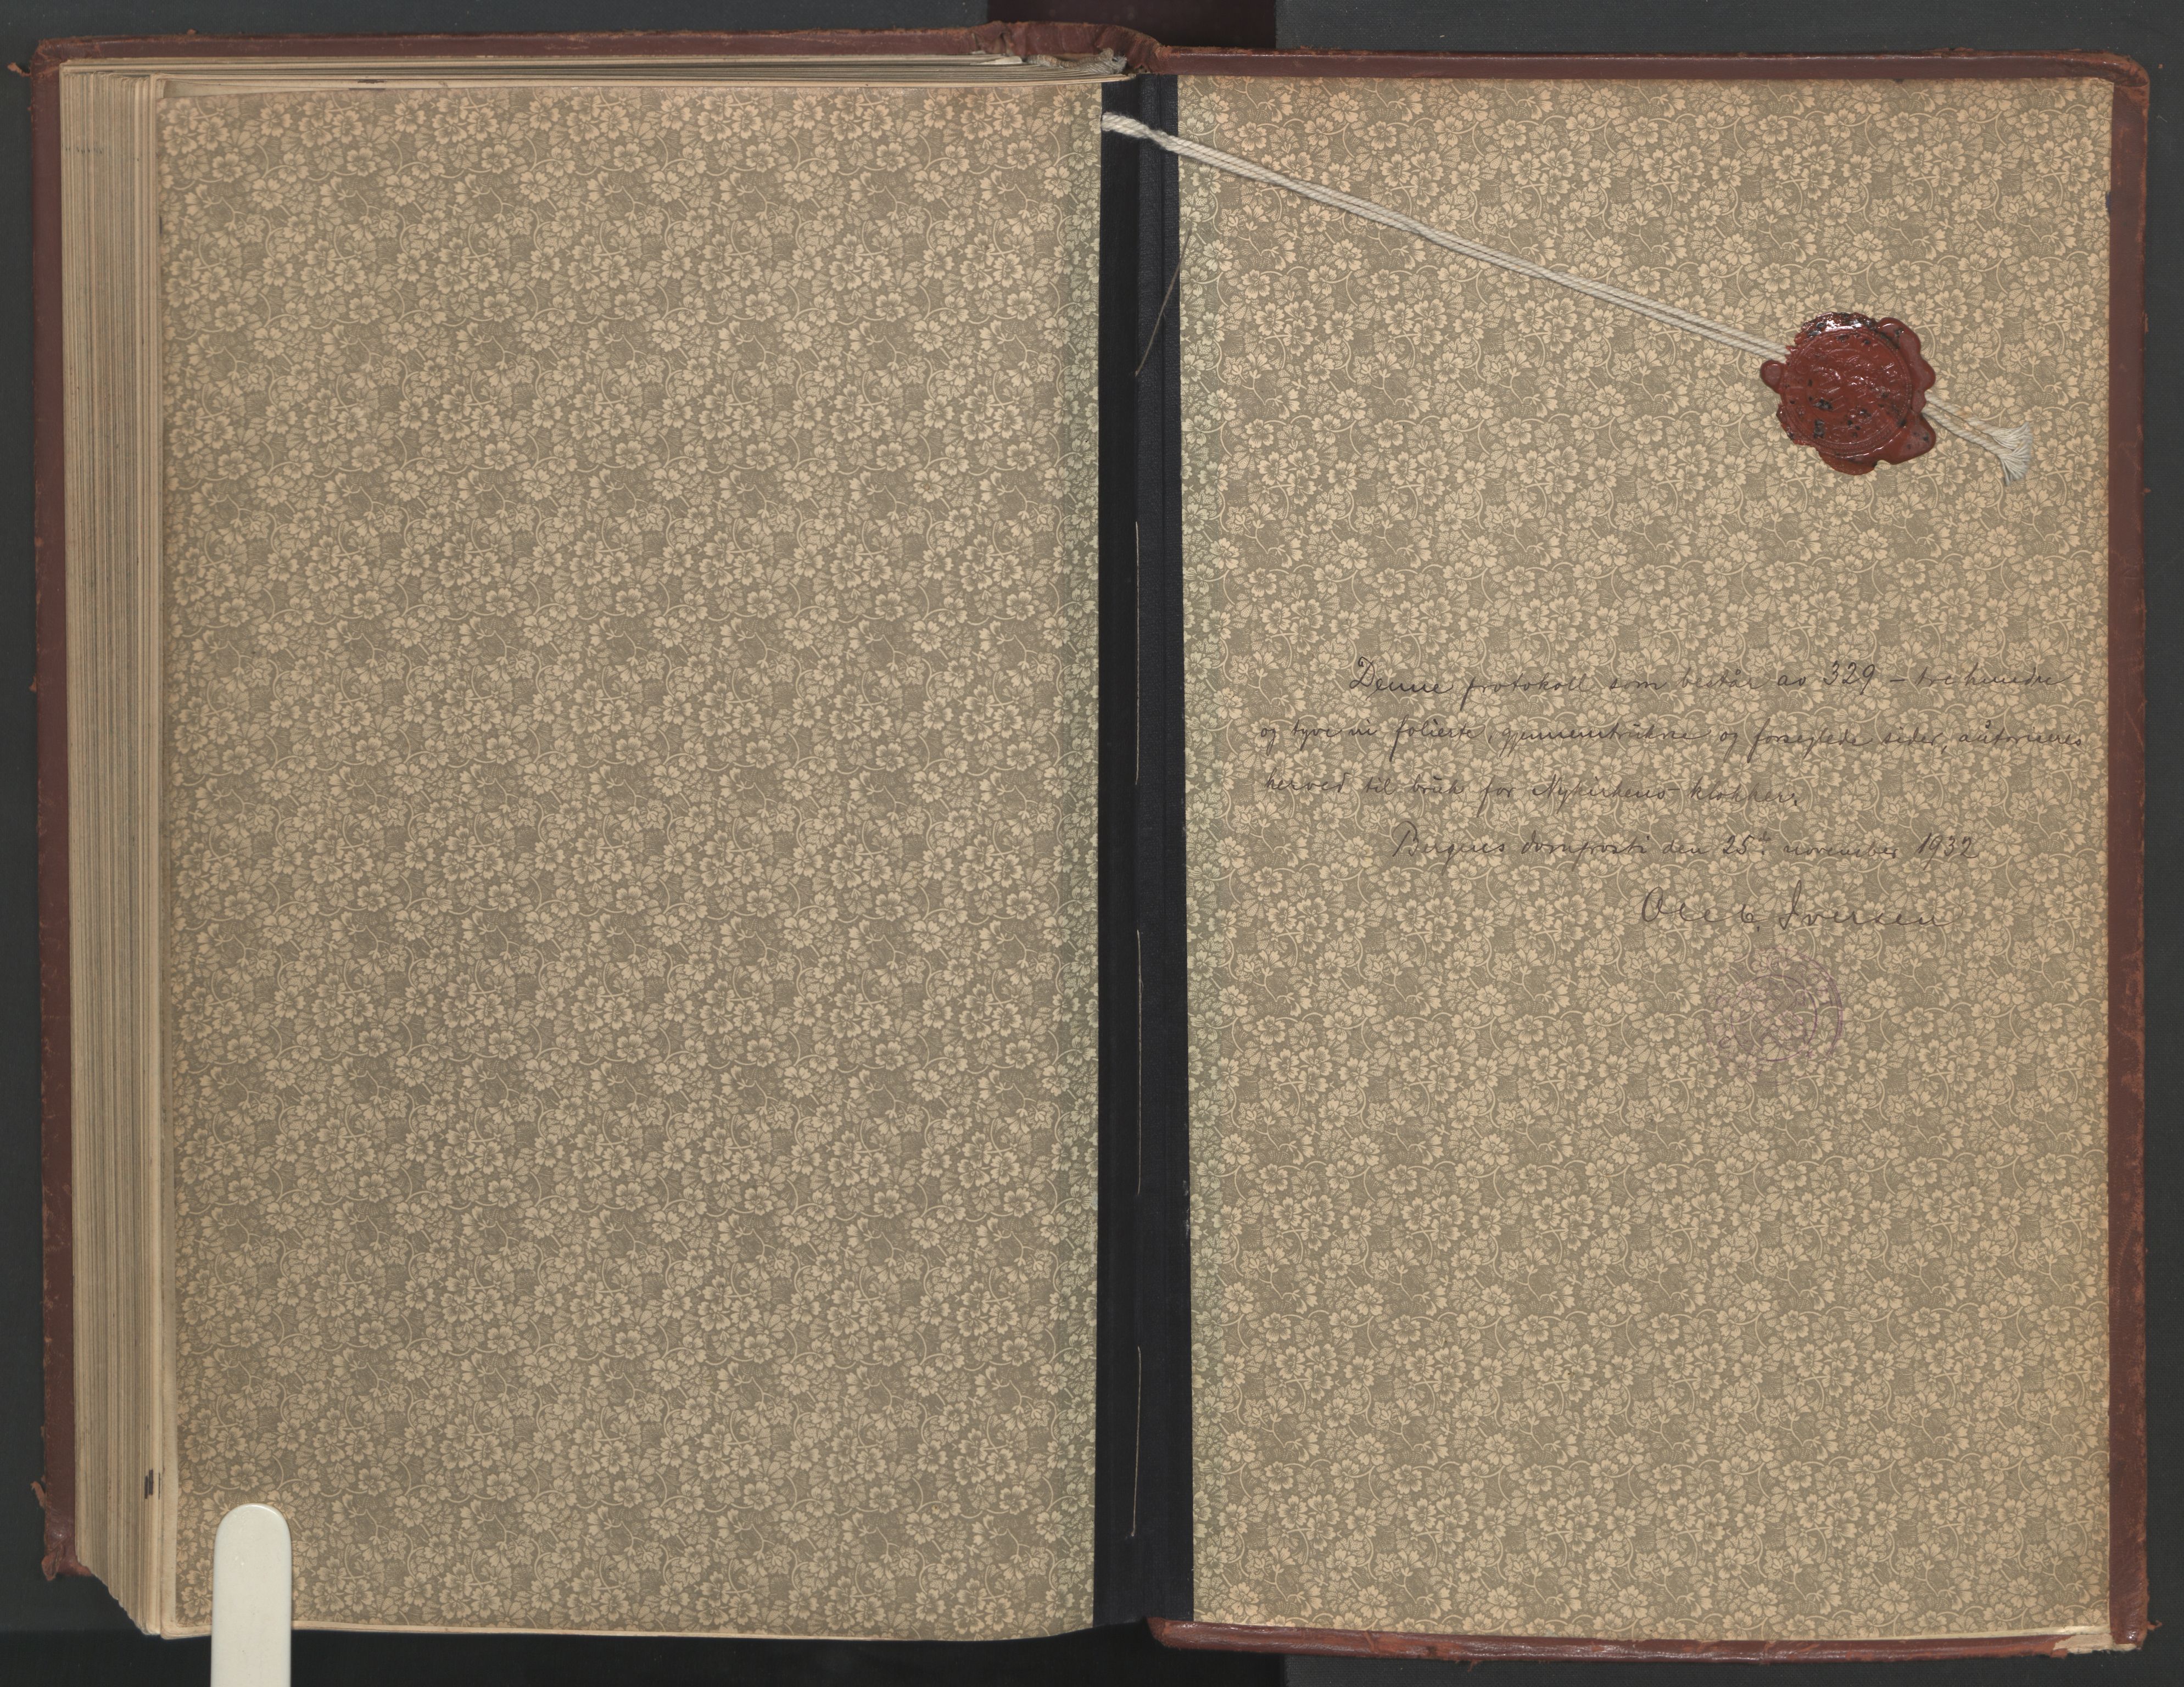 Denne protokoll som består av 329 – tre hundre
og tyve ni folierte, gjennemtrukne og forseglede sider, autoriseres
herved til bruk for Nykirkens klokker.
Bergens domprosti den 25de november 1932
Ole C. Iversen